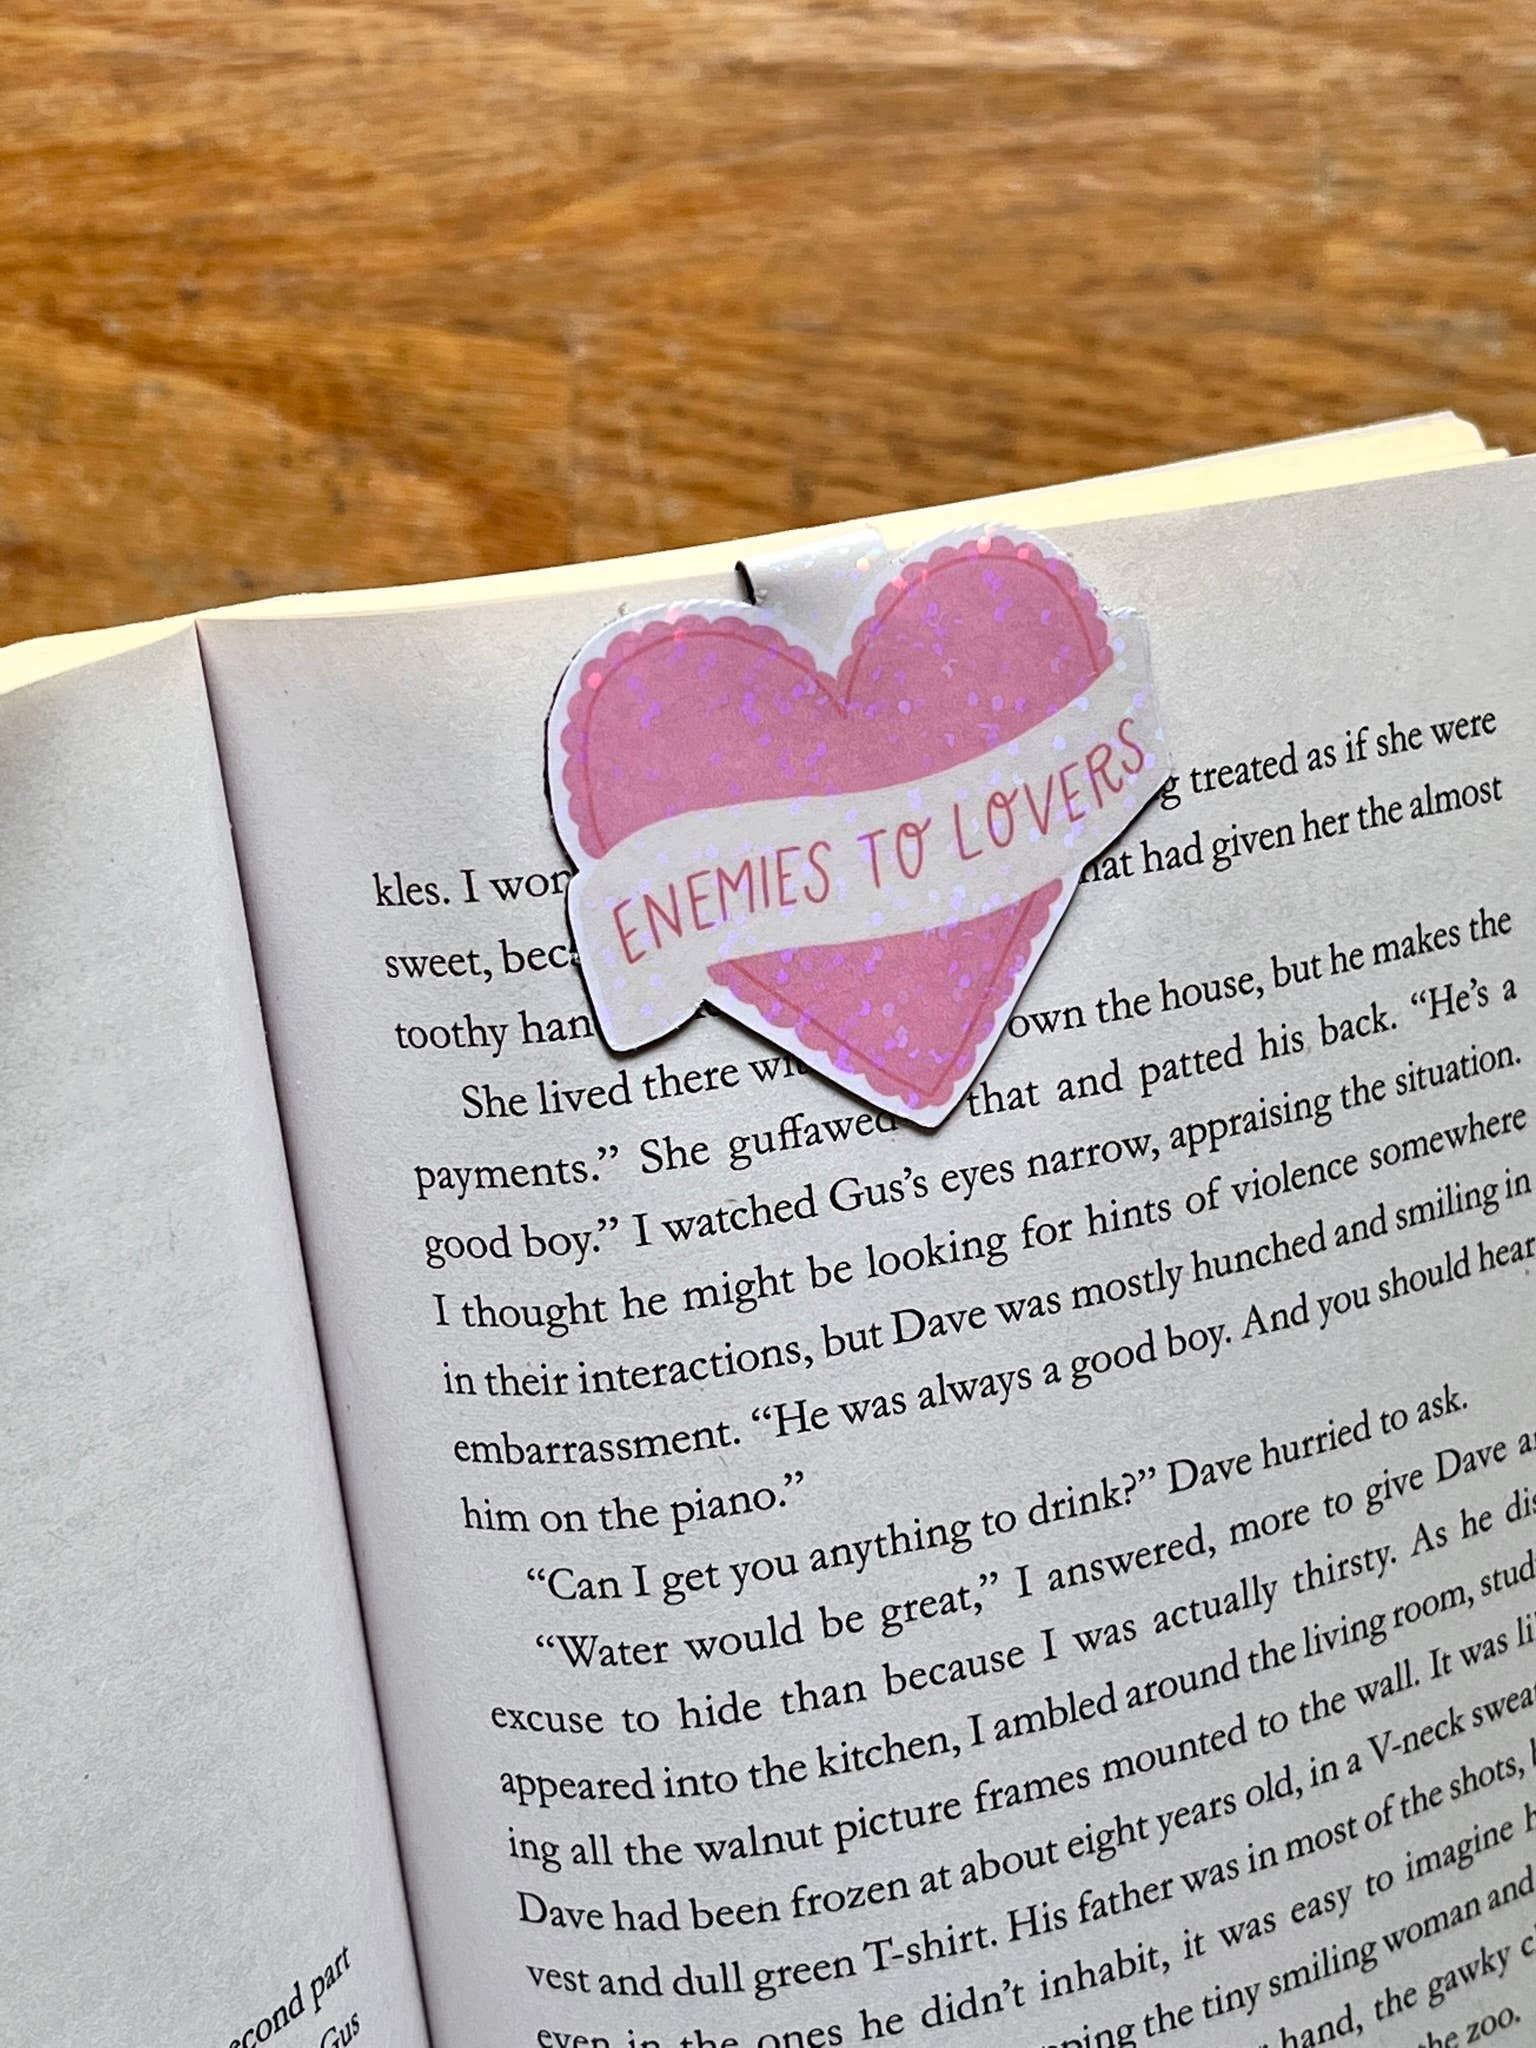 ENEMIES TO LOVERS
treated as if she were
kles. I had given her the almost
sweet,
toothy own the house, but he makes the
She lived there that and patted his back. “He’s a
payments.” She guffawed appraising the situation.
good boy.” I watched Gus’s eyes narrow,
I thought he might be looking for hints of violence somewhere
in their interactions, but Dave was mostly hunched and smiling in
embarrassment. “He was always a good boy. And you should hear
him on the piano.”
“Can I get you anything to drink?” Dave hurried to ask.
“Water would be great,” I answered, more to give Dave
excuse to hide than because I was actually thirsty. As he
appeared into the kitchen, I ambled around the living room,
ing all the walnut picture frames mounted to the wall. It was
Dave had been frozen at about eight years old, in a V-neck
vest and dull green T-shirt. His father was in most of the shots,
even in the ones he didn’t inhabit, it was easy to imagine
the tiny smiling woman and
hand, the gawky
the zoo.
second part
Gus